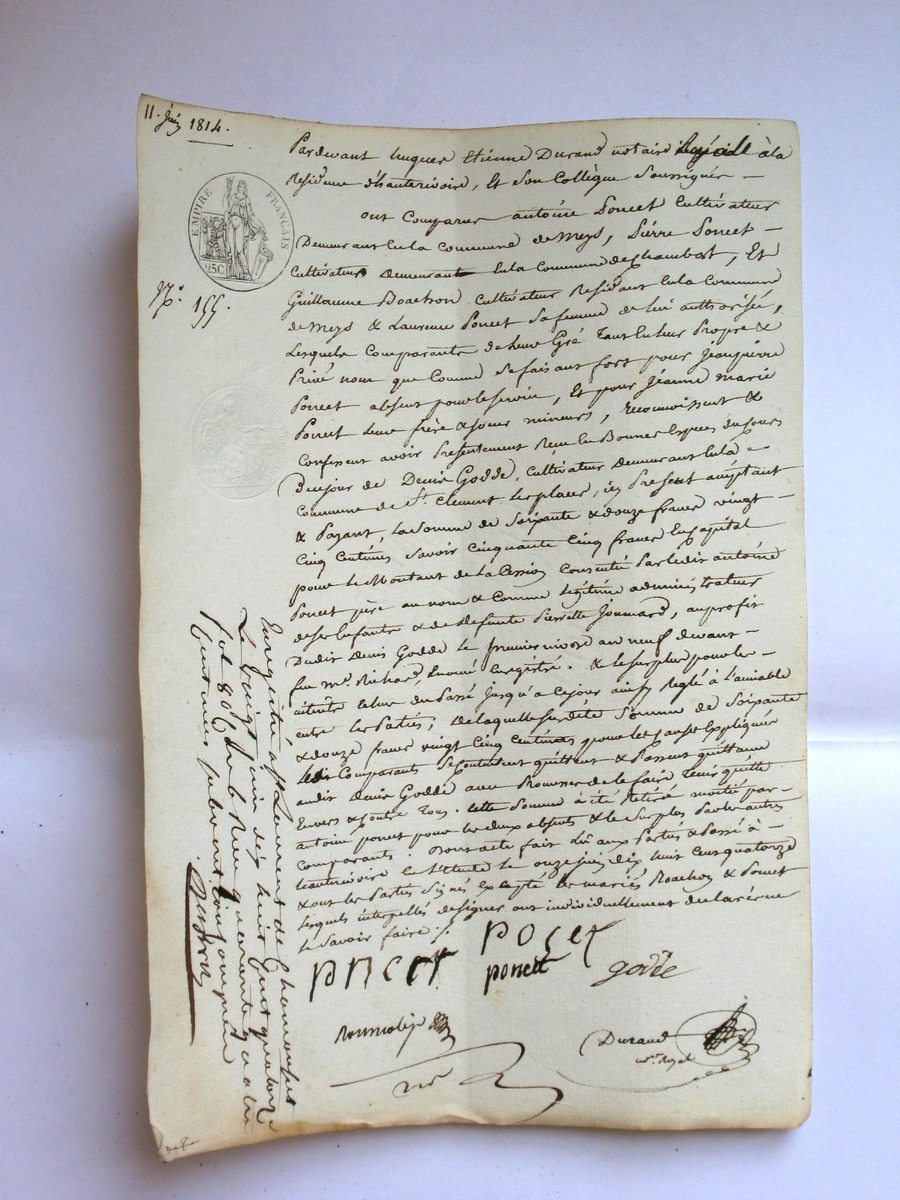 11. juin 1814.
EMPIRE FRANÇAIS
25C
N.° 155.
Pardevant hugues Etienne Durand notaire Royal à la
Residence d'hauterivoire, Et Son Collègue Soussignés —
ont Comparus antoine Poncet Cultivateur
Demeurant En la Commune de Meys, Pierre Poncet —
Cultivateur demeurant En la Commune de Chambost, Et
Guillaume Boachon Cultivateur Residant En la Commune
de Meys & Laurence Poncet Sa femme de lui authorisée,
Lesquels Comparants de leur Gré Tant En leur Propre &
Privé nom que Comme Se faisant fort pour Jeanpierre
Poncet absent pour le Service, Et pour Jeanne marie
Poncet leur frère & Soeur mineurs, reconnoissent &
Confessent avoir Presentement Reçu En Bonnes Especes du Cours
De ce jour de Denis Godde, Cultivateur Demeurant En la
Commune de St. Clement les places, ici Present acceptant
& Payant, La Somme de Soixante & douze francs vingt —
Cinq Centimes Savoir Cinquante Cinq francs En Capital
pour le Montant de la Cession Consentie Par ledit antoine
Poncet père au nom & Comme légitime administrateur
de Ses Enfants & de defunte Pierrette Joannard, au profit
Dudit Denis Godde le premier nivose an neuf devant —
feu Me. Richard, Enregistré. & le Surplus pour les
intérêts Echus du Passé Jusqu'a Ce jour ainsi Reglé à L'amiable
entre les Parties; De laquelle Susdite Somme de Soixante
& douze francs vingt Cinq Centimes pour les Causes Expliquées
lesdits Comparants Se Contentent quittent & Passent quittance
audit Denis Godde avec Promesse de le faire Tenir quitte
Envers & Contre Tous. Cette Somme a été Retirée moitié par —
antoine poncet pour les deux absents & le Surplus Par les autres
Comparants. Dont acte fait Lû aux Parties & Passé à —
hauterivoire En l'Etude le onze juin dix huit Cent quatorze
& ont les Parties Signé Excepté les mariés Boachon & Poncet
lesquels interpellés de signer ont individuellement declaré ne
le Savoir faire ./.
poncet
poncet
godde
Durand
nre. Royal
Enregistré à St Laurent de Chamousset
Le Vingt juin dix huit Cent quatorze
fol. 80
quarante quatre
Centimes subvention comprise